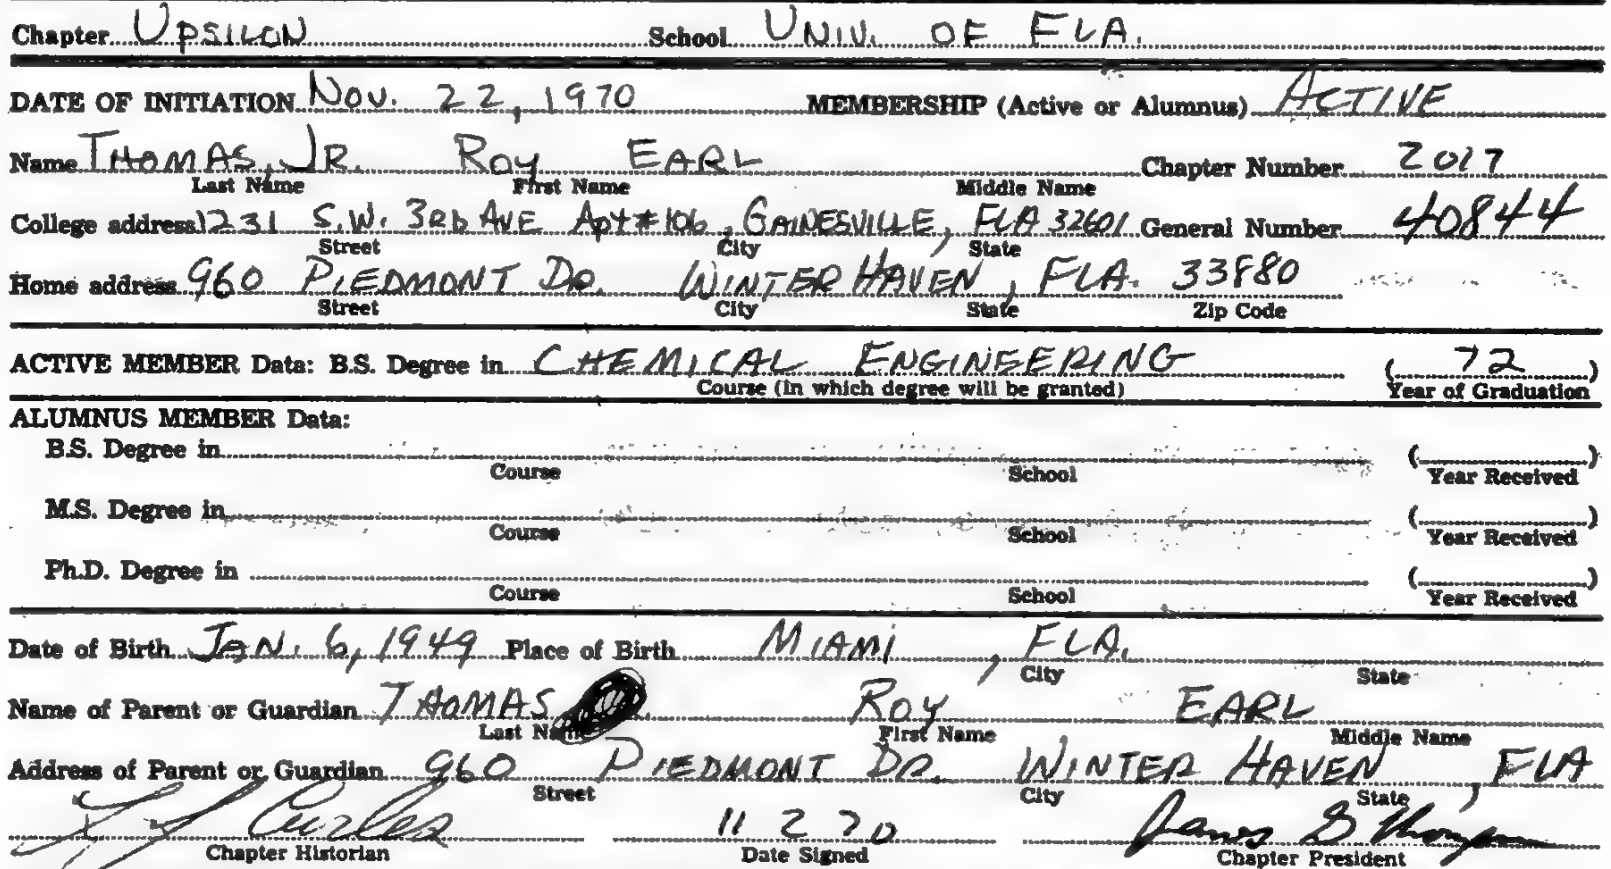 Chapter UPSILON School UNIV. OF FLA.
DATE OF INITIATION NOV. 22, 1970 MEMBERSHIP (Active or Alumnus) ACTIVE
Name THOMAS, JR. ROY EARL Chapter Number 2017
Last Name First Name Middle Name
College address 1231 S.W. 3RD AVE Apt #106, GAINESVILLE, FLA 32601 General Number 40844
Street City State
Home address 960 PIEDMONT DR. WINTER HAVEN, FLA. 33880
Street City State Zip Code
ACTIVE MEMBER Data: B.S. Degree in CHEMICAL ENGINEERING (72)
Course (in which degree will be granted) Year of Graduation
ALUMNUS MEMBER Data:
B.S. Degree in ( )
Course School Year Received
M.S. Degree in ( )
Course School Year Received
Ph.D. Degree in ( )
Course School Year Received
Date of Birth JAN. 6, 1949 Place of Birth MIAMI, FLA.
City State
Name of Parent or Guardian THOMAS ROY EARL
Last Name First Name Middle Name
Address of Parent or Guardian 960 PIEDMONT DR. WINTER HAVEN, FLA
Street City State
11 2 70 James G Thompson
Chapter Historian Date Signed Chapter President